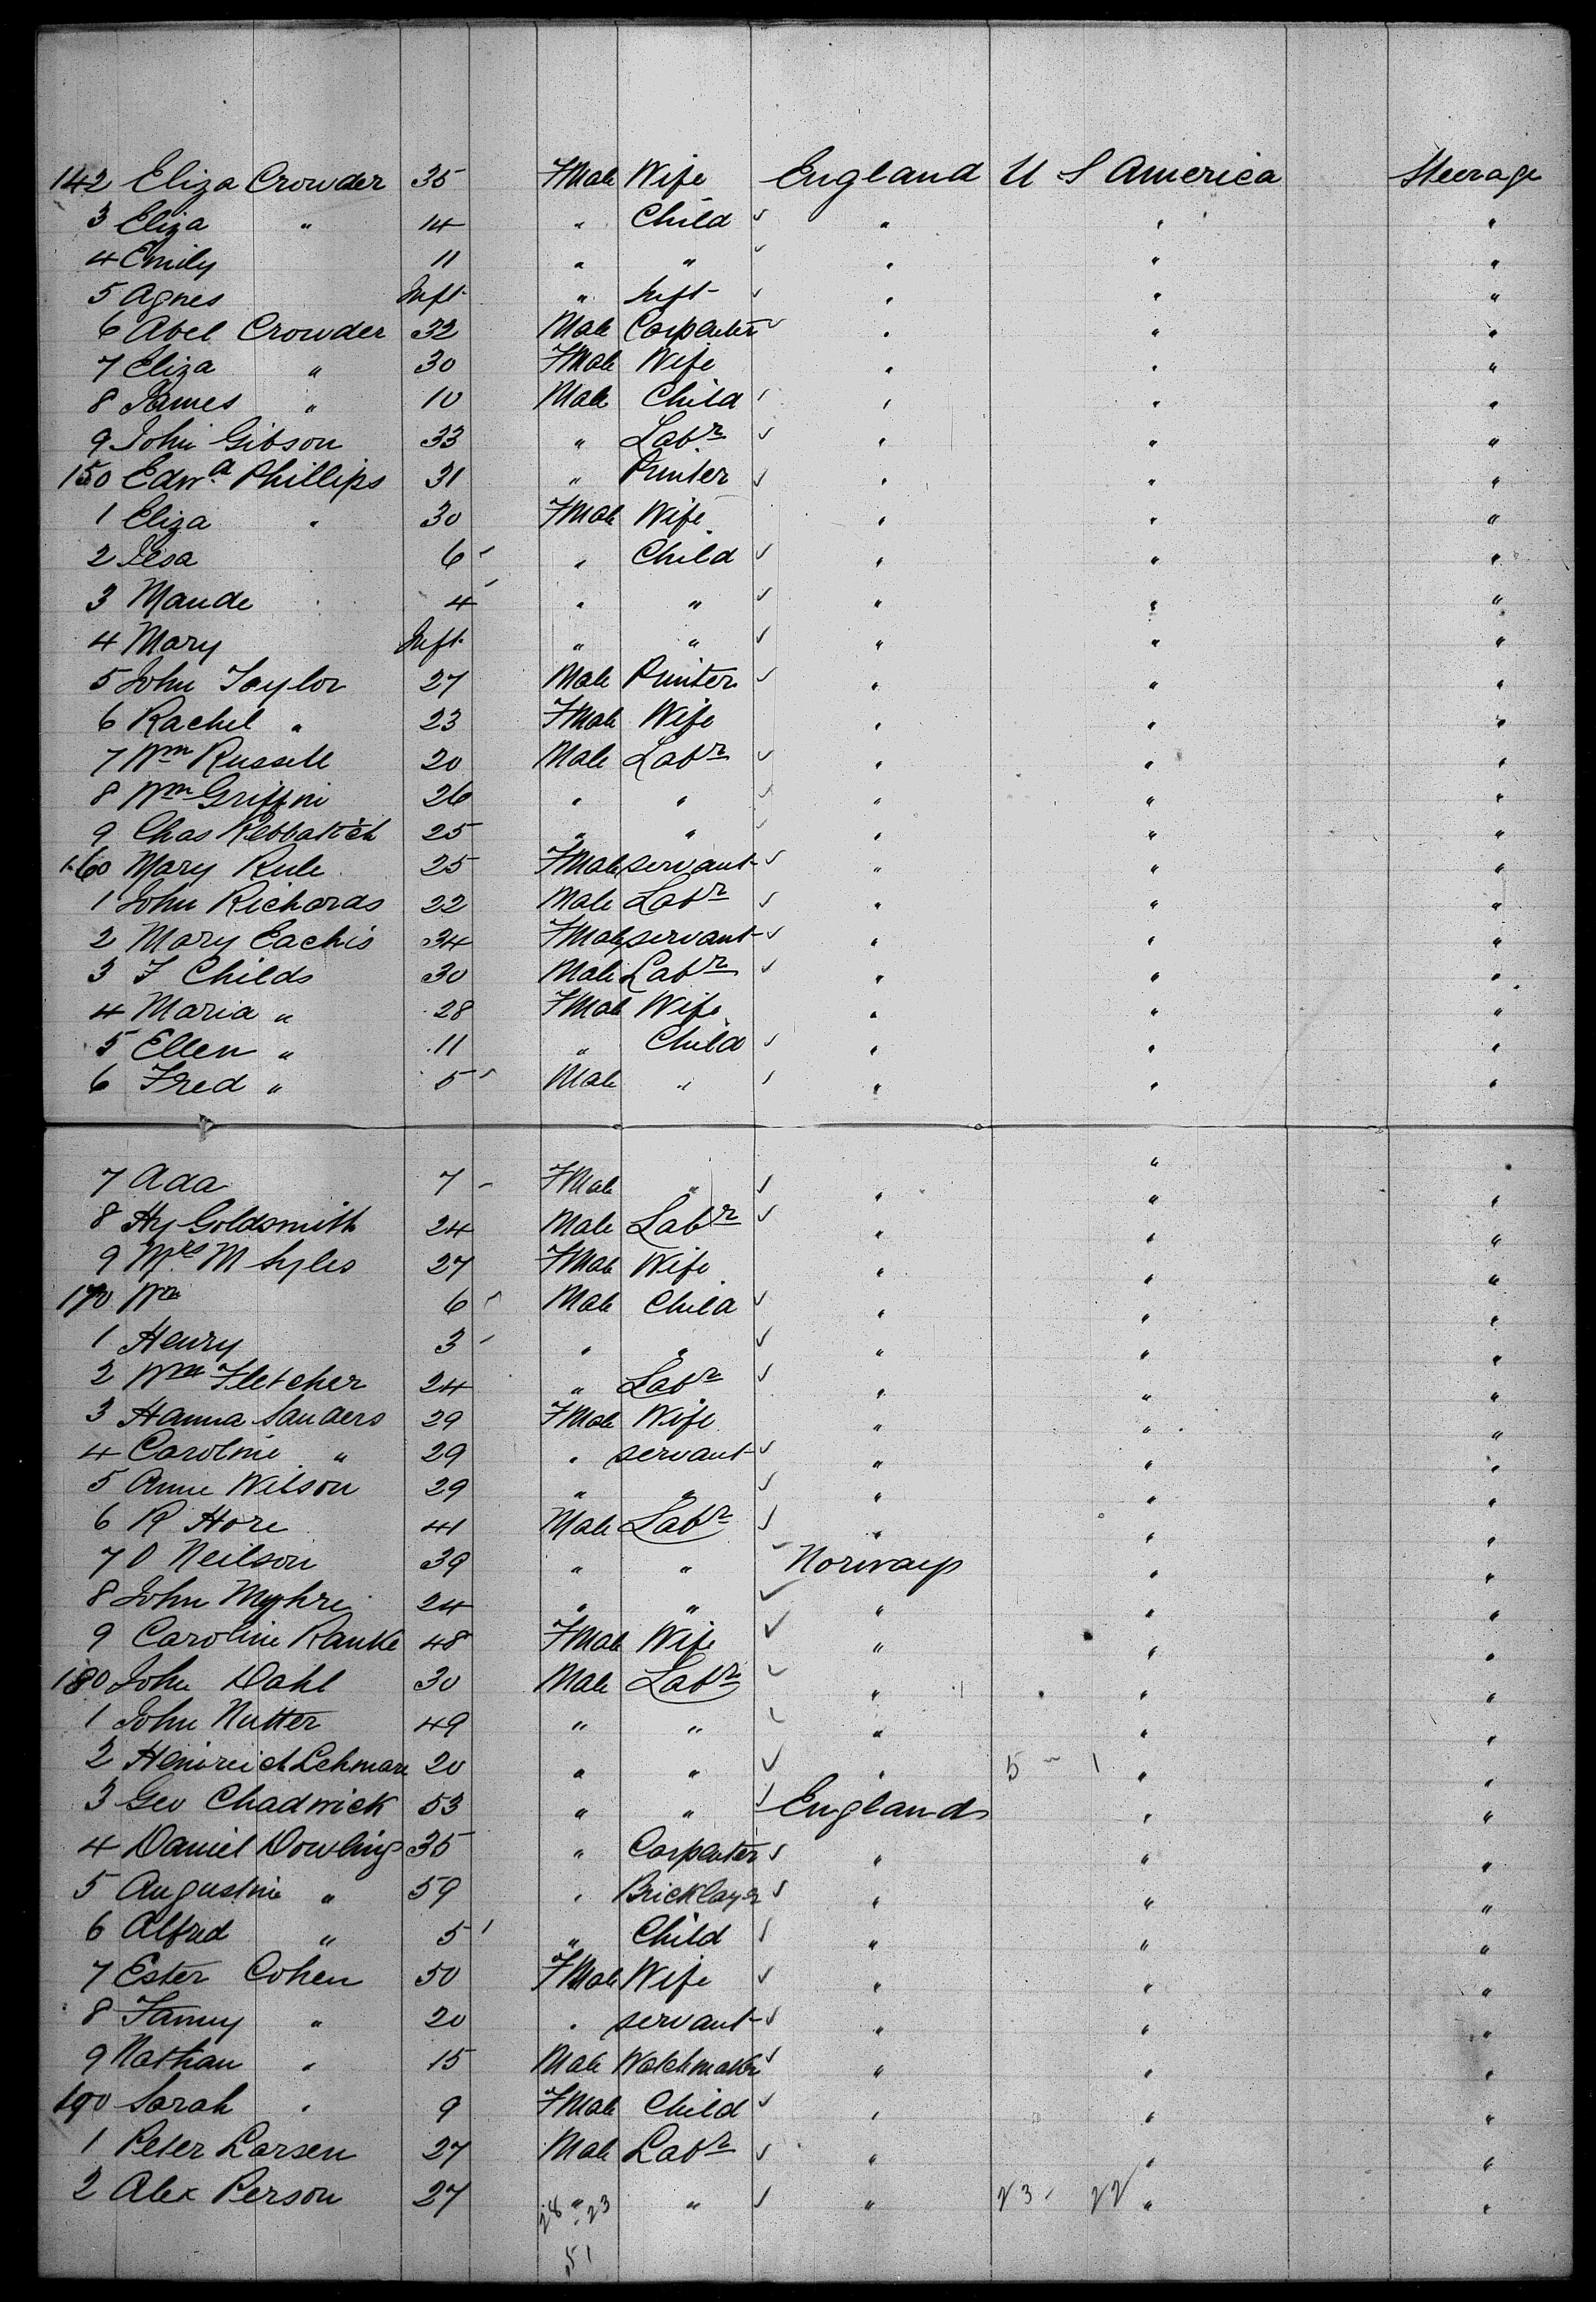 142 Eliza Crowder 35 FMale Wife England U S America Steerage
3 Eliza " 14 " Child ✓ " " "
4 Emily 11 " " ✓ " " "
5 Agnes Inft " Inft ✓ " " "
6 Abel Crowder 32 Male Carpenter ✓ " " "
7 Eliza " 30 FMale Wife " " "
8 James " 10 Male Child ✓ " " "
9 John Gibson 33 " Labr ✓ " " "
150 Edwd Phillips 31 " Printer ✓ " " "
1 Eliza " 30 FMale Wife " " "
2 6 " Child ✓ " " "
3 Maude 4 " " ✓ " " "
4 Mary Inft " " ✓ " " "
5 John Taylor 27 Male Printer ✓ " " "
6 Rachel " 23 FMale Wife " " "
7 Wm Russell 20 Male Labr ✓ " " "
8 Wm Griffin 26 " " ✓ " " "
9 Chas 25 " " ✓ " " "
160 Mary Rule 25 FMale servant ✓ " " "
1 John Richards 22 Male Labr ✓ " " "
2 Mary Eachis 34 FMale servant ✓ " " "
3 F Childs 30 Male Labr ✓ " " "
4 Maria " 28 FMale Wife " " "
5 Ellen " 11 " Child ✓ " " "
6 Fred " 5 Male " ✓ " " "
7 Ada 7 FMale " ✓ " " "
8 Hy Goldsmith 24 Male Labr ✓ " " "
9 Mrs M Syles 27 FMale Wife " " "
170 Wm 6 Male Child ✓ " " "
1 Henry 3 " " ✓ " " "
2 Wm Fletcher 24 " Labr ✓ " " "
3 Hanna Sanders 29 FMale Wife " " "
4 Caroline " 29 " servant ✓ " " "
5 Anne Wilson 29 " " ✓ " " "
6 R Hore 41 Male Labr ✓ " " "
7 O Neilson 39 " " ✓ Norway " "
8 John Myhre 24 " " ✓ " " "
9 Caroline Ranke 48 FMale Wife ✓ " " "
180 John Dahl 30 Male Labr ✓ " " "
1 John Nutter 49 " " ✓ " " "
2 Heinrich Lehmann 20 " " ✓ " 5 - 1 " "
3 Geo Chadwick 53 " " ✓ England " "
4 Daniel Dowling 35 " Carpenter ✓ " " "
5 Augustine " 59 " Bricklayer ✓ " " "
6 Alfred " 5 " Child ✓ " " "
7 Ester Cohen 50 FMale Wife ✓ " " "
8 Fanny " 20 " servant ✓ " " "
9 Nathan " 15 Male Watchmaker ✓ " " "
190 Sarah " 9 FMale Child ✓ " " "
1 Peter Larsen 27 Male Labr ✓ " " "
2 Alex Person 27 " " ✓ " 23 - 22 " "
28 - 23
51